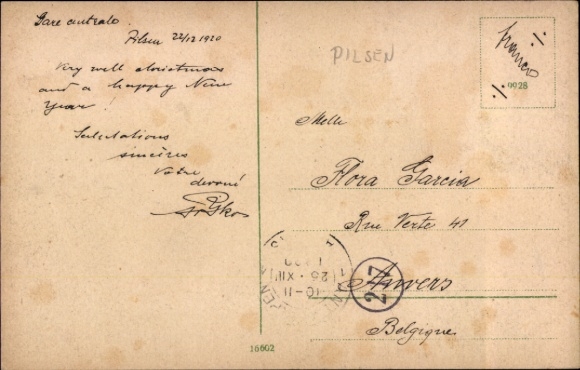 Gare centrale
Pilsen 22/12 1920
Very well christmas
and a happy New
Year!
Salutations
sincères
Votre
devoué
PILSEN
franco
9928
Melle
Flora Garcia
Rue Verte 41
Anvers
Belgique
10-11
26·XII
27
16602